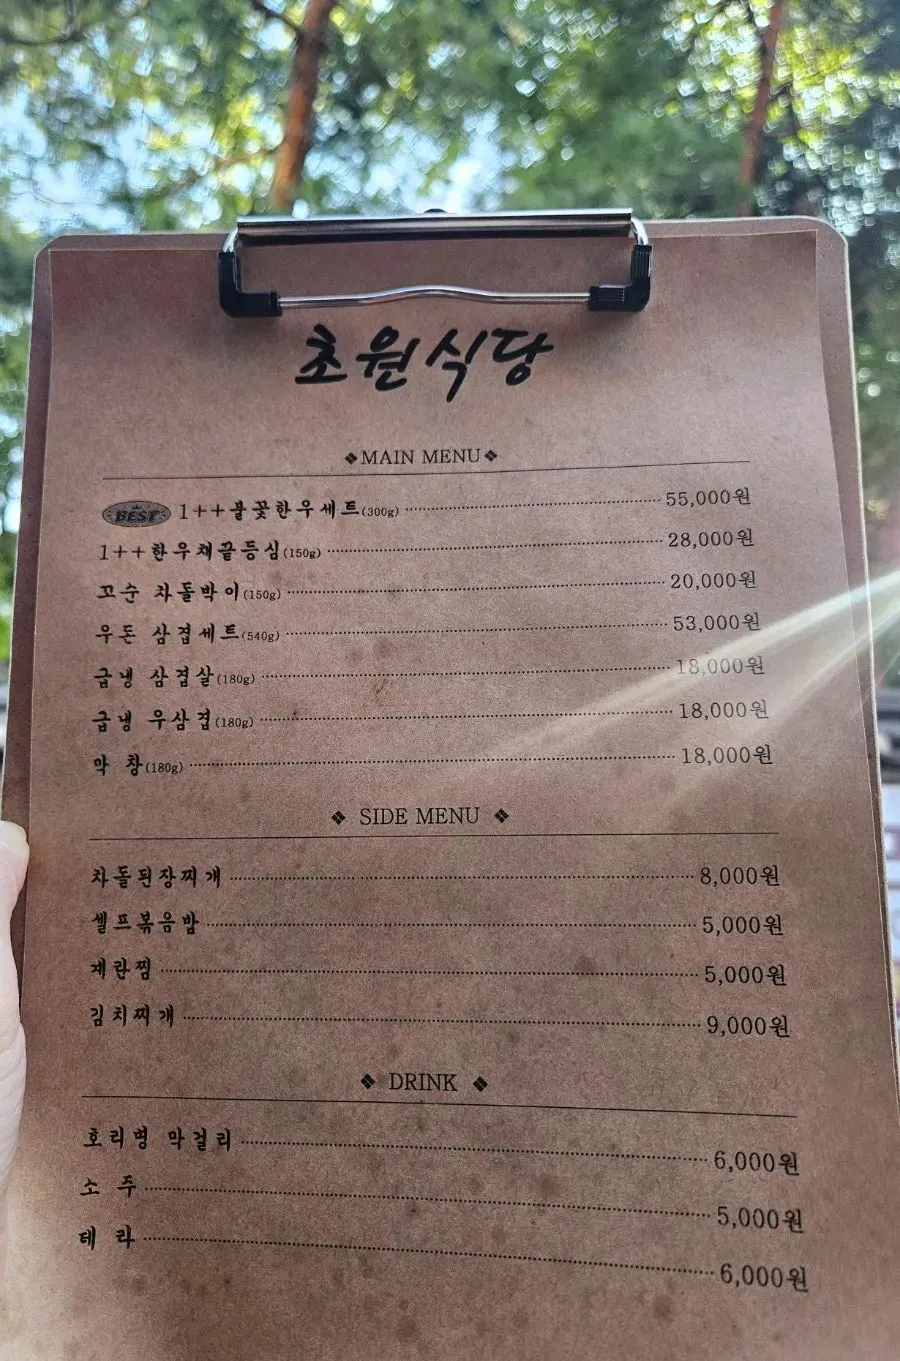 초원식당
❖MAIN MENU❖
BEST 1++불꽃한우세트(300g) 55,000원
1++한우채끝등심(150g) 28,000원
꼬순 차돌박이(150g) 20,000원
우돈 삼겹세트(540g) 53,000원
급냉 삼겹살(180g) 18,000원
급냉 우삼겹(180g) 18,000원
막 창(180g) 18,000원
❖ SIDE MENU ❖
차돌된장찌개 8,000원
셀프볶음밥 5,000원
계란찜 5,000원
김치찌개 9,000원
❖ DRINK ❖
호리병 막걸리 6,000원
소 주 5,000원
테 라 6,000원